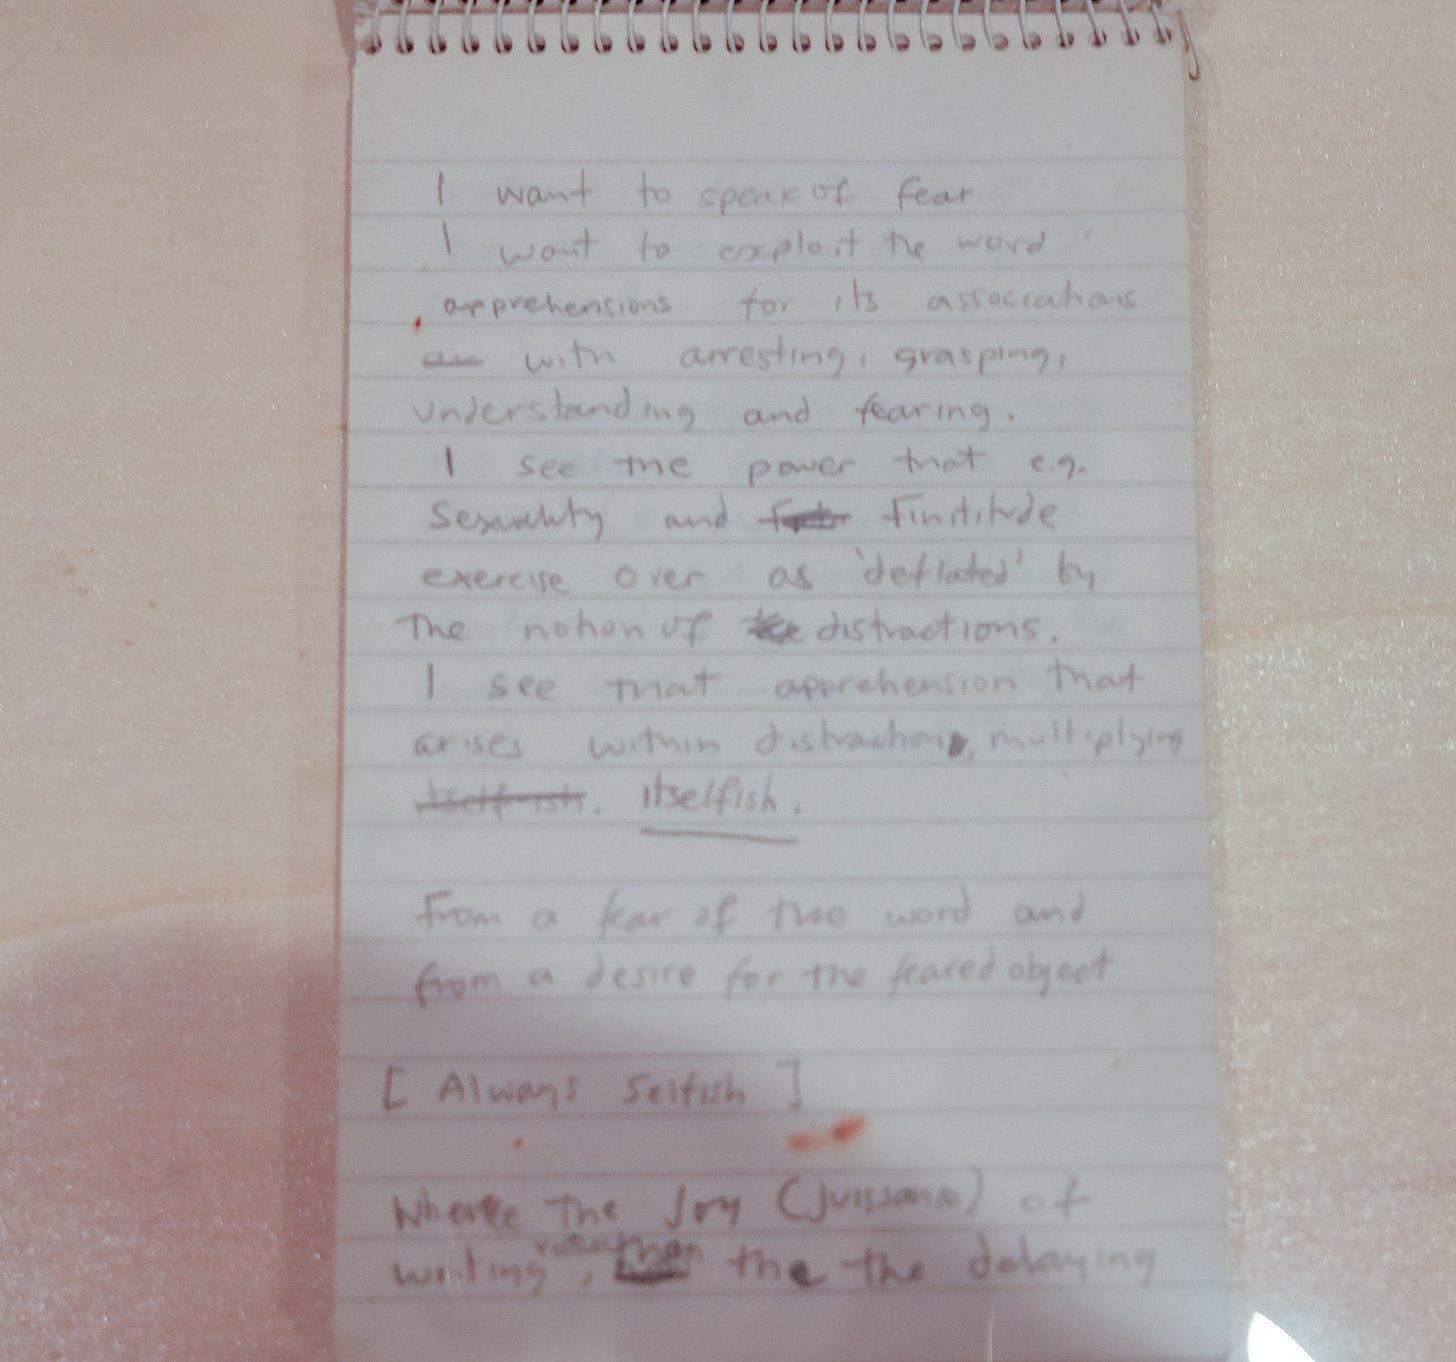 I want to speak of fear
I want to exploit the word
apprehensions for its associations
with arresting, grasping,
understanding and fearing.
I see the power that e.g.
sexuality and Finititude
exercise over as 'deflated' by
The notion of distractions.
I see that apprehension that
arises within distraction, multiplying
itselfish. itselfish.
From a fear of the word and
from a desire for the feared object
[ Always Selfish ]
Where the Joy (Juissance) of
writing, rather than the the delaying